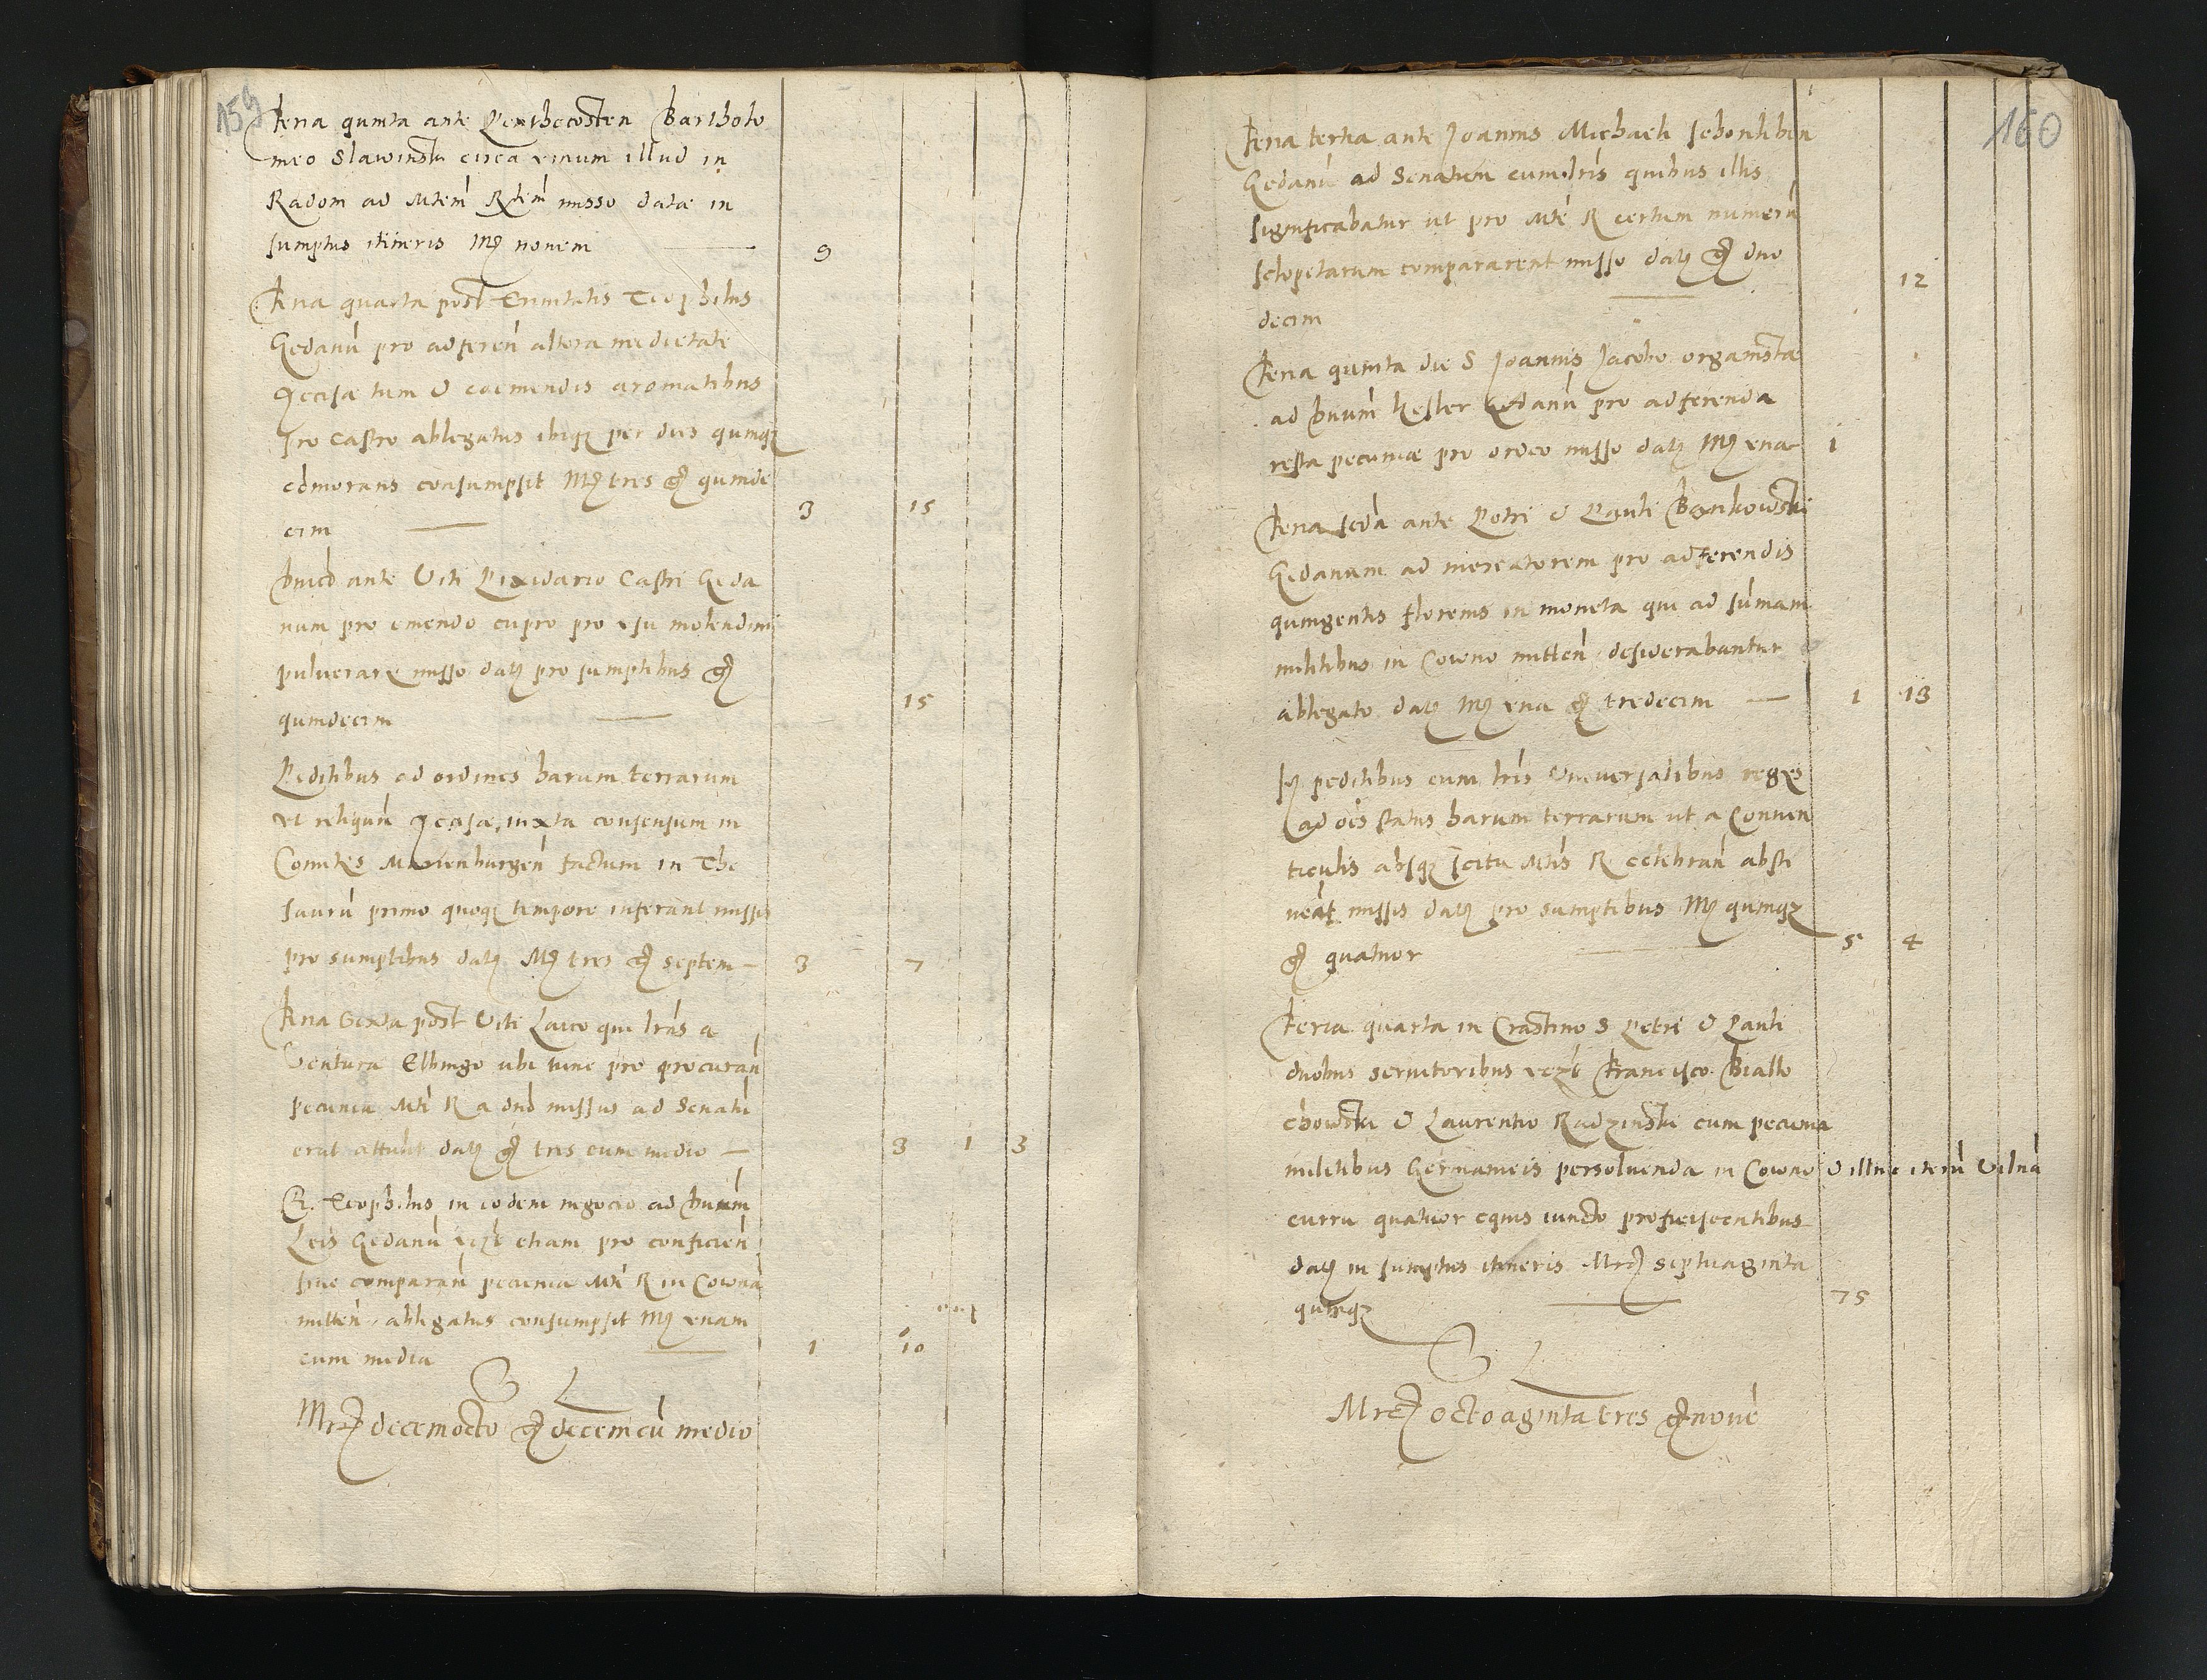 159
Feria quinta ante Penthecosten Bartholo
meo Slawinski circa vinum illud in
Radom ad Mtem Rtem misso datae in
sumptus itineris Mr novem — 9
Feria quarta post Trinitatis Teophilus
Gedanu pro adferen altera medietate
accisae tum & coemendis aromatibus
pro castro ablegatus ibiqz per dies quinqz
comorans consumpsit Mr tres gr quinde
cim — 3 15
ante Viti Pixidario Castri Geda
num pro emendo cupro pro usu molendini
pulverarie misso datz pro sumptibus gr
quindecim — 15
Peditibus ad ordines harum terrarum
ut reliquu accisae, iuxta consensum in
Comitiis Marienburgen factum in The
sauru primo quoqz tempore inferant missis
pro sumptibus datz Mr tres gr septem — 3 7
Feria Sexta post Viti Laico qui lras a
Ventura Elbingo ubi tunc pro procuran
pecunia Mti R a dno missus ad Senatu
erat attulit datz gr tres cum medio — 3 1 3
R. Teophilus in eodem negocio ad
Gedanu etiam pro conficien
sive comparan pecunia Mti R in Cowna
mitten ablegatus consumpsit Mr unam
cum media — 1 10
Mrc decemocto gr decem cu medio
160
Feria tertia ante Joannis Michaeli
Gedanu ad Senatum cum lris quibus illis
significabatur ut pro Mte R certum numeru
sclopetarum compararent misso datz gr duo
decim — 12
Feria quinta die S Joannis Jacobo organistae
ad Gedanu pro adferenda
resta pecuniae pro ordeo misso datz Mr una 1
Feria scda ante Petri & Pauli Bankowski
Gedanum ad mercatorem pro adferendis
quingentis florenis in moneta qui ad sumam
militibus in Cowno mitten desiderabantur
ablegato datz Mr una gr tredecim — 1 13
peditibus cum lris Universalibus regiis
ad oes status harum terrarum ut a Conven
ticulis absqz scitu Mtis R celebran absti
neat missis datz pro sumptibus Mr quinqz
gr quatuor — 5 4
Feria quarta in Crastino S Petri & Pauli
duobus servitoribus Francisco Biallo
chowski & Laurentio Radzinski cum pecunia
militibus Germanicis persolvenda in Cowno & illuc iteru Vilna
curru quatuor equis iuncto proficiscentibus
datz in sumptus itineris Mrc septuaginta
quinqz — 75
Mrc octoaginta tres gr nove